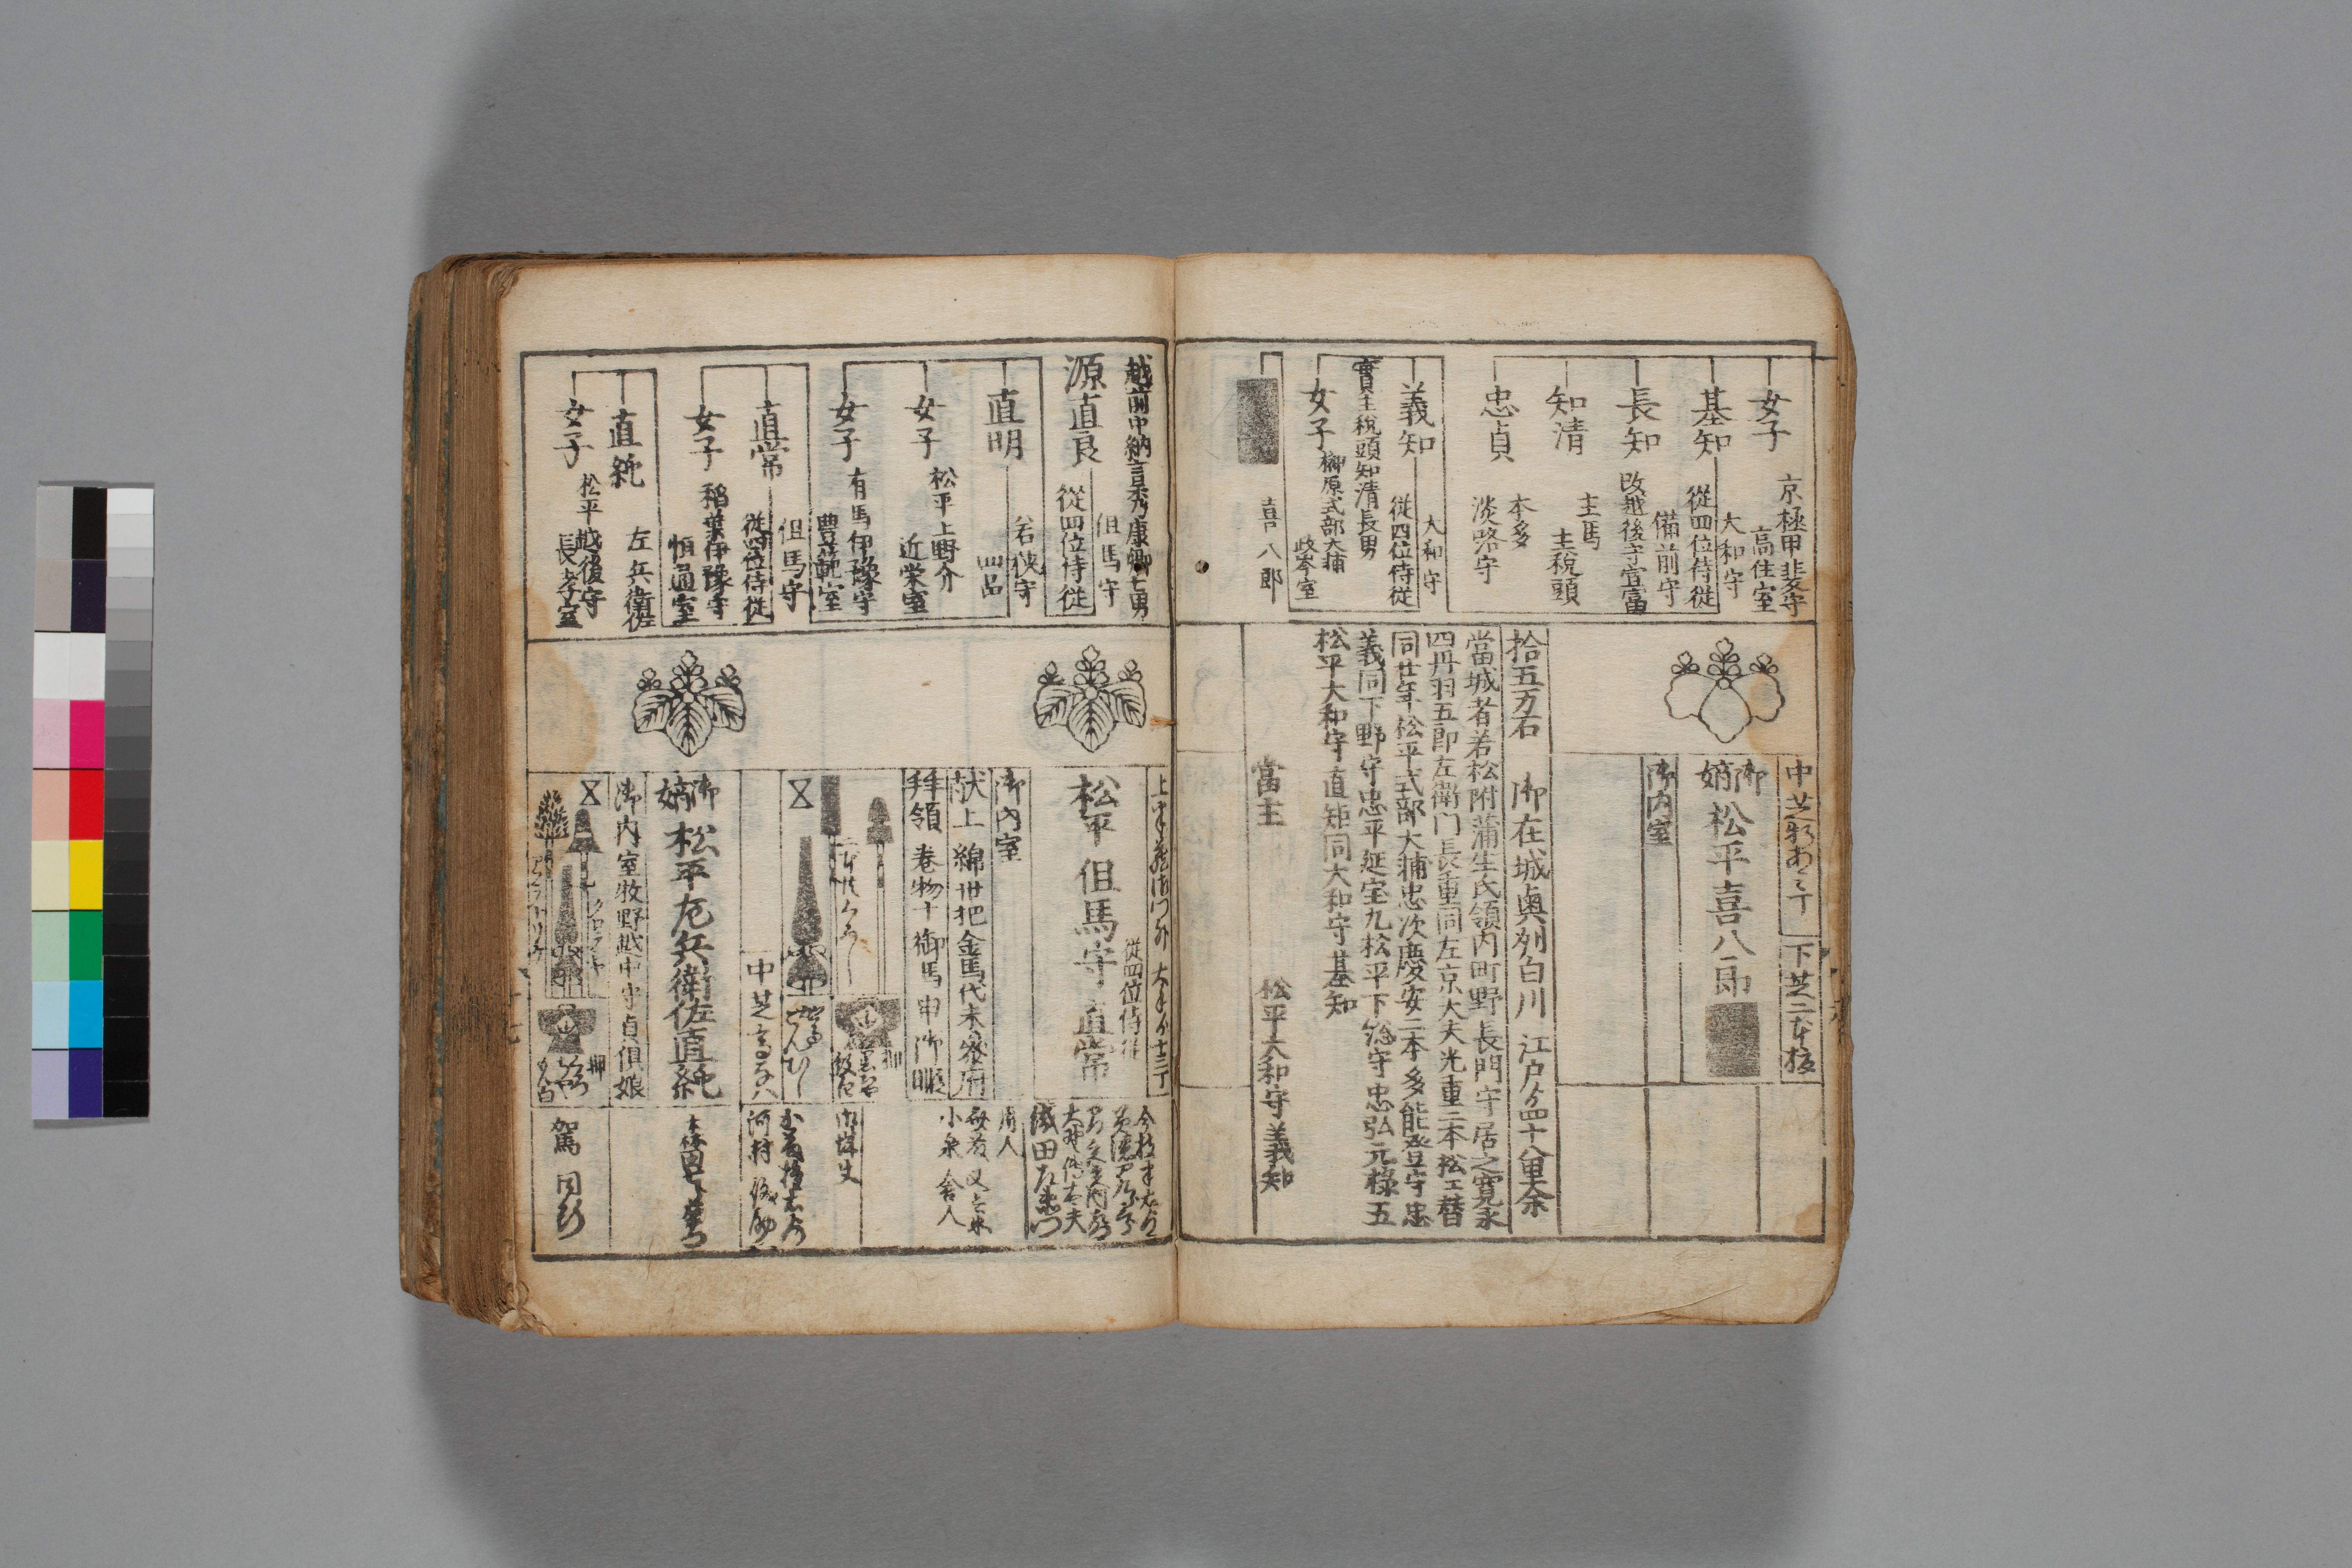 女子
京極甲斐守
高住室
基知
大和守
從四位侍従
長知
備前守
改越後守宣富
知清
主馬
主税頭
忠貞
本多
淡路守
義知
大和守
從四位侍従
實主税頭知清長男
女子
榊原式部大輔
政岑室
喜八郎
中芝新あミ丁
下芝二本榎
御嫡
松平喜八郎
御内室
拾五万石
御在城奥列白川
江戸ゟ四十八里余
當城者若松附蒲生氏領内町野長門守居之寛永
四丹羽五郎左衛門長重同左京大夫光重二本松エ替
同廿年松平式部大輔忠次慶安二本多能登守忠
義同下野守忠平延宝九松平下総守忠弘元禄五
松平大和守直矩同大和守基知
當主
松平大和守義知
越前中納言秀康卿七男
源直良
但馬守
從四位侍従
直明
若狭守
四品
女子
松平上野介
近栄室
女子
有馬伊豫守
豊範室
直常
但馬守
従四位侍従
女子
稲葉伊豫守
恒通室
直純
左兵衛佐
女子
松平越後守
長孝室
大手ゟ十三丁
從四位侍従
松平但馬守直常
御内室
献上
綿卅把金馬代末
拜領
巻物十御馬
織田左衛門
用人
小泉舎人
押
中芝
河村
御嫡
松平左兵衛佐直純
御内室牧野越中守貞倶娘
押
駕